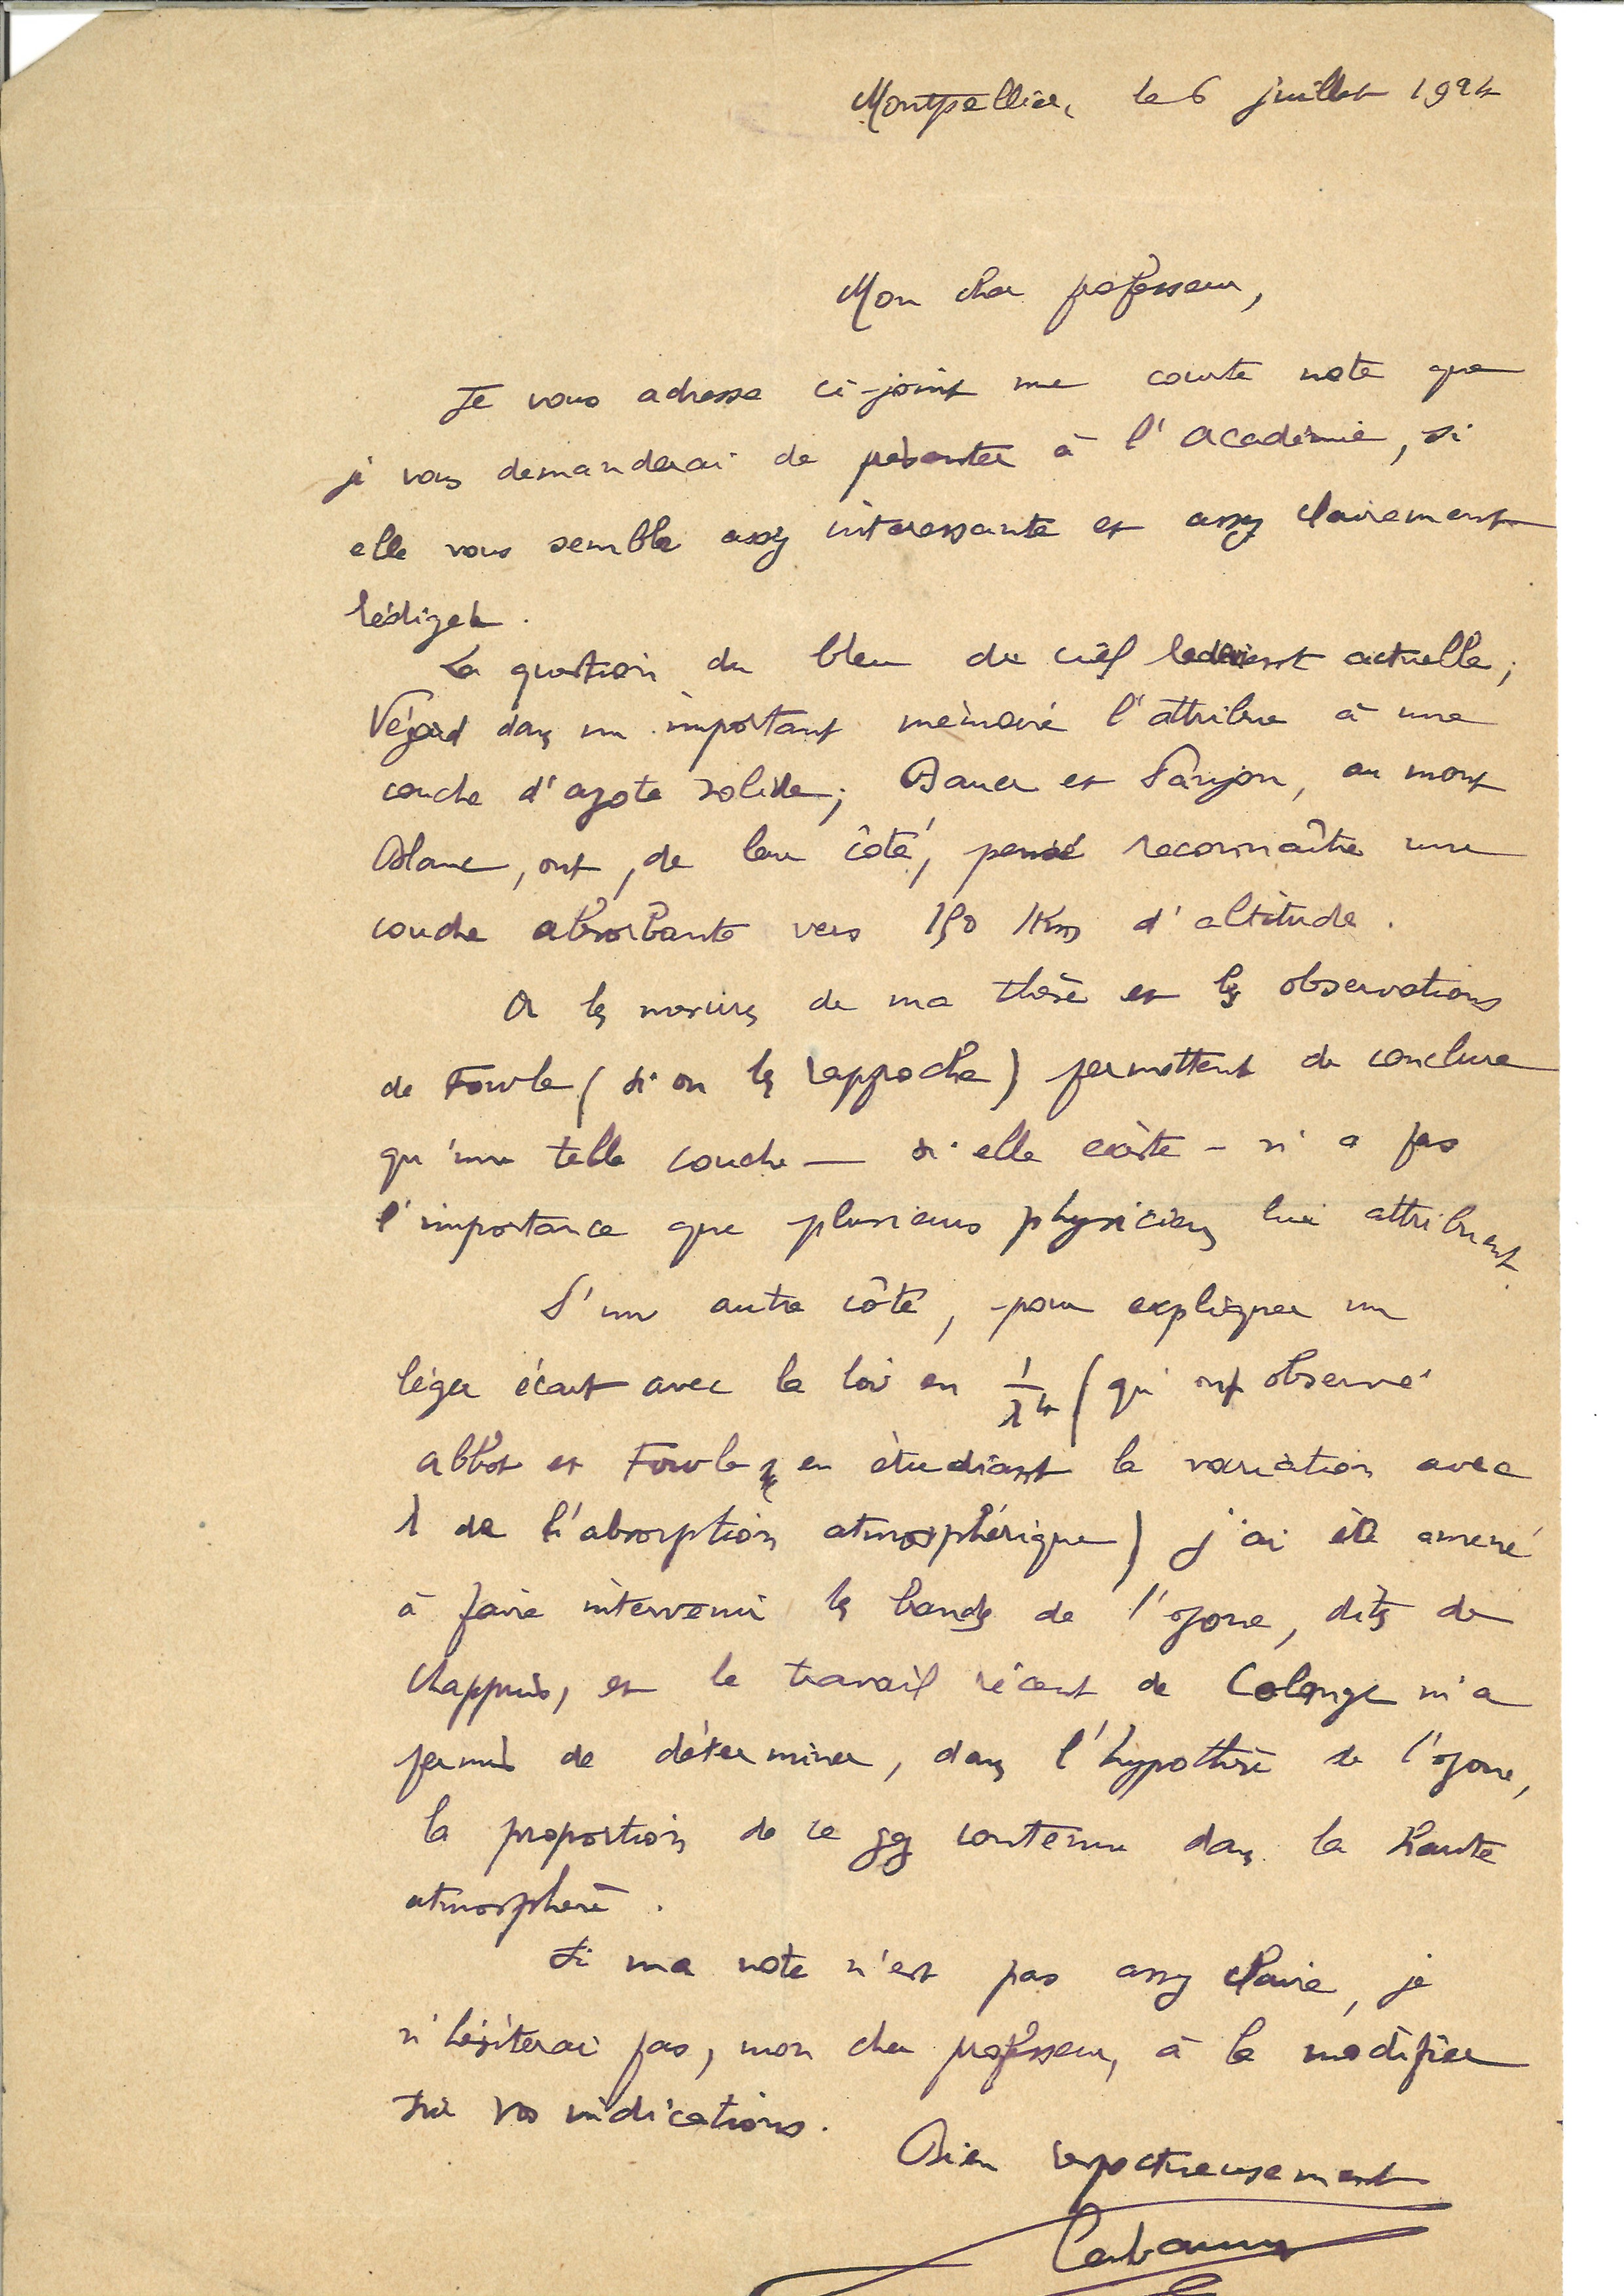 Montpellier, le 6 juillet 1924
Mon cher professeur,
Je vous adresse ci-joint une courte note que
je vous demanderai de présenter à l'Académie, si
elle vous semble assez intéressante et assez clairement
rédigée.
La question du bleu du ciel redevient actuelle ;
Végard dans un important mémoire l'attribue à une
couche d'azote solide ; Bauer et Danjon, au mont
Blanc, ont, de leur côté, pensé reconnaître une
couche absorbante vers 150 Km d'altitude.
Or les mesures de ma thèse et les observations
de Fowle (si on les rapproche) permettent de conclure
qu'une telle couche — si elle existe — n'a pas
l'importance que plusieurs physiciens lui attribuent.
D'un autre côté, pour expliquer un
léger écart avec la loi en 1/λ⁴ (qu'ont observé
Abbot et Fowle en étudiant la variation avec
λ de l'absorption atmosphérique) j'ai été amené
à faire intervenir les bandes de l'ozone, dites de
Chappuis, et le travail récent de Colange m'a
permis de déterminer, dans l'hypothèse de l'ozone,
la proportion de ce gaz contenu dans la haute
atmosphère.
Si ma note n'est pas assez claire, je
n'hésiterai pas, mon cher professeur, à la modifier
sur vos indications.
Bien respectueusement
Cabannes